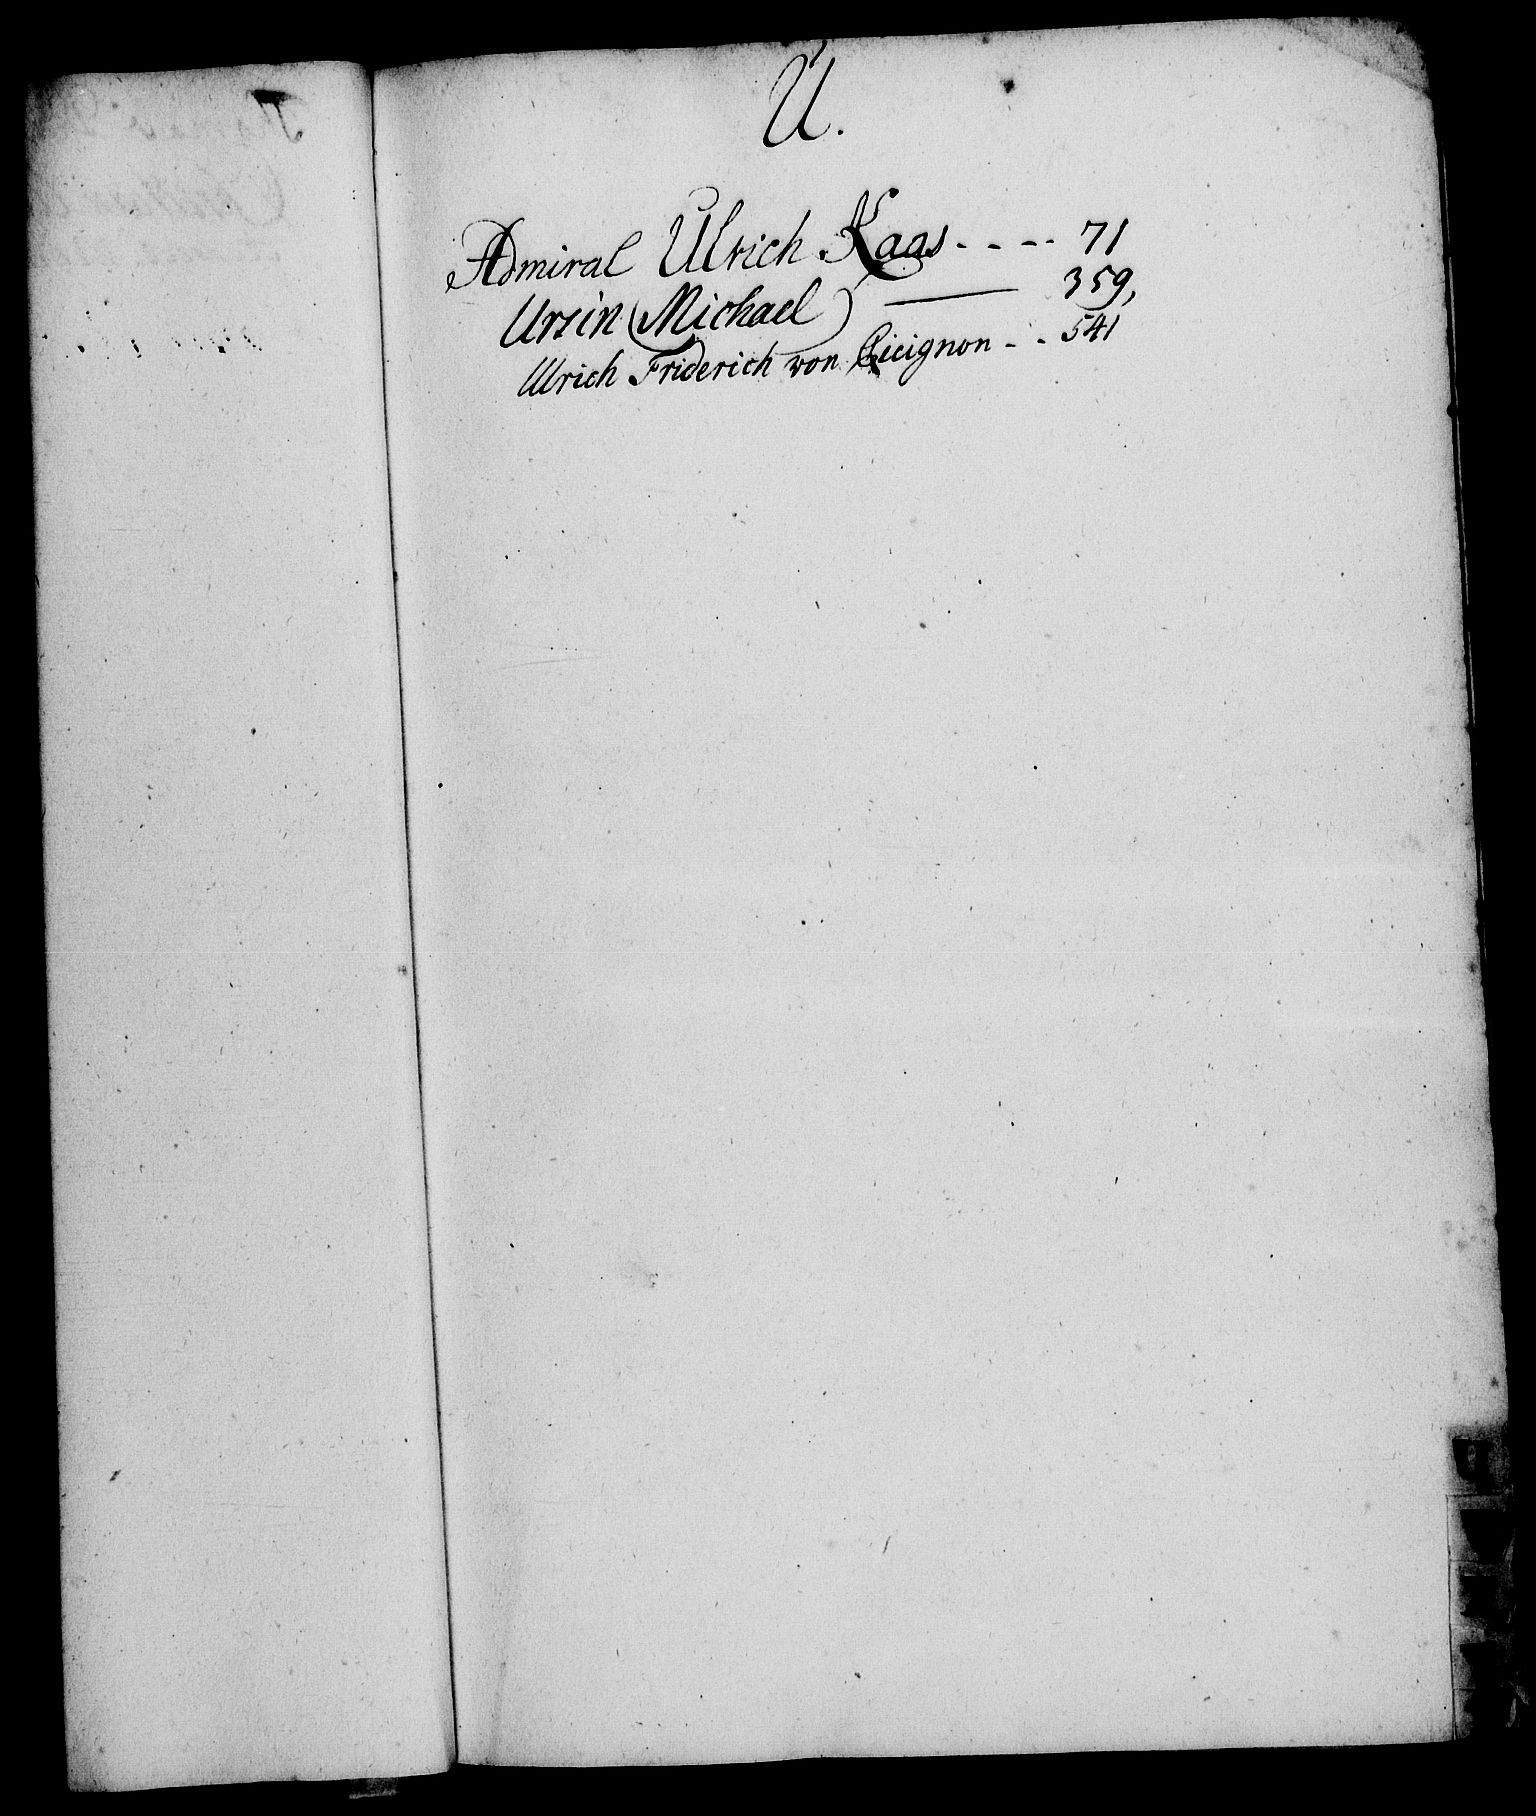 U.
Admiral Ulrich Kaas - - - - 71
Ursin (Michael) —— 359,
Ulrich Friderich von Cicignon - - 541